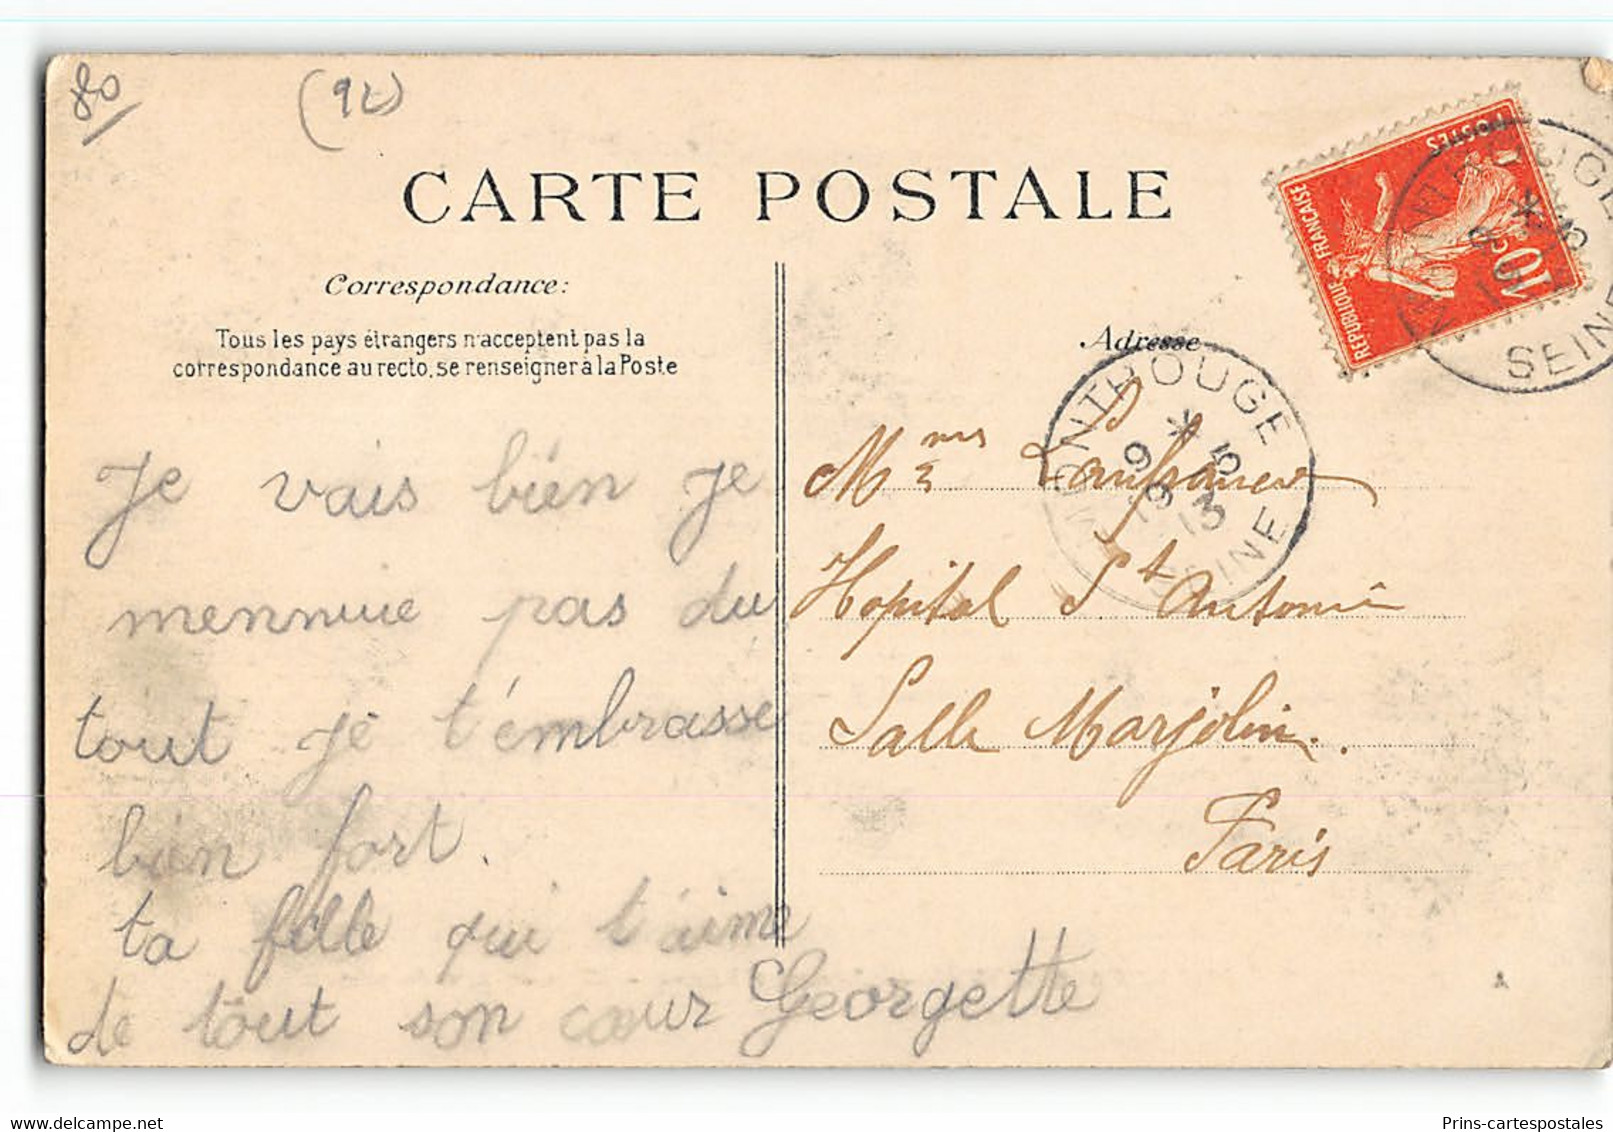 80
(92)
CARTE POSTALE
Correspondance:
Tous les pays étrangers n'acceptent pas la
correspondance au recto, se renseigner à la Poste
Je vais bien je
mennuie pas du
tout je t'embrasse
bien fort.
ta fille qui t'aime
de tout son cœur Georgette
REPUBLIQUE FRANÇAISE
POSTES
10c
MONTROUGE
SEINE
Adresse
MONTROUGE
* 
9 5
13
SEINE
Mme
Hopital St Antoine
Salle Marjolin.
Paris
Prins-cartespostales